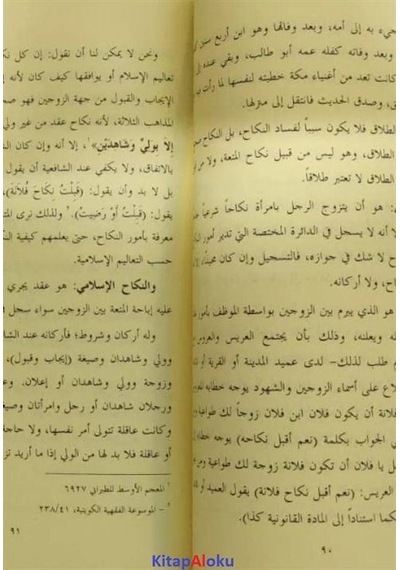 جيء به إلى أمه، وبعد وفاتها وهو ابن أربع سنين
وبعد وفاته كفله عمه أبو طالب، وبقي عنده
كانت تعد من أغنياء مكة خطبته لنفسها لما رأت
وصدق الحديث فانتقل إلى منزلها.
الطلاق فلا يكون سبباً لفساد النكاح، بل النكاح
الطلاق، وهو ليس من قبيل نكاح المتعة، ولا
الطلاق لا تعتبر طلاقاً.
هو أن يتزوج الرجل بامرأة نكاحاً شرعياً
لا أنه لا يسجل في الدائرة المختصة التي تدير أمور
لا شك في جوازه، فالتسجيل وإن كان
ولا أركانه.
هو الذي يبرم بين الزوجين بواسطة الموظف
ويعلنه، وذلك بأن يجتمع العريس والعروس
طلب لذلك- لدى عميد المدينة أو القرية أو
على أسماء الزوجين والشهود يوجه خطابه
فلانة أن يكون فلان ابن فلان زوجاً لك طواعية
الجواب بكلمة (نعم أقبل نكاحه) يوجه
يا فلان أن تكون فلانة زوجة لك طواعية
العريس: (نعم أقبل نكاح فلانة) يقول العميد أو
استناداً إلى المادة القانونية كذا).
٩٠
ونحن لا يمكن لنا أن نقول: إن كل
تعاليم الإسلام أو يوافقها كيف كان لأنه
الإيجاب والقبول من جهة الزوجين فهو
المذاهب الثلاثة، لأنه نكاح عقد من غير
إلا بوليٍّ وشاهدين»¹، إلا أنه وإن كان
بالاتفاق، ولا يكفي عند الشافعية أن يقول
بل لا بد وأن يقول: (قبلتُ نكاح فلانة)،
يقول: (قبلتُ أو رضيت).² ولذلك نرى
معرفة بأمور النكاح، حتى يعلمهم كيفية
حسب التعاليم الإسلامية.
والنكاح الإسلامي: هو عقد يجري
عليه إباحة المتعة بين الزوجين سواء سجل
وله أركان وشروط؛ فأركانه عند
وولي وشاهدان وصيغة (إيجاب وقبول)،
وزوجة وولي وشاهدان أو إعلان.
ورجلان شاهدان أو رجل وامرأتان
وكانت عاقلة تتولى أمر نفسها، ولا حاجة
أو عاقلة فلا بد لها من الولي إذا ما أريد
¹ المعجم الأوسط للطبراني ٦٩٢٧
² - الموسوعة الفقهية الكويتية، ٢٣٨/٤١
٩١
KitapAloku